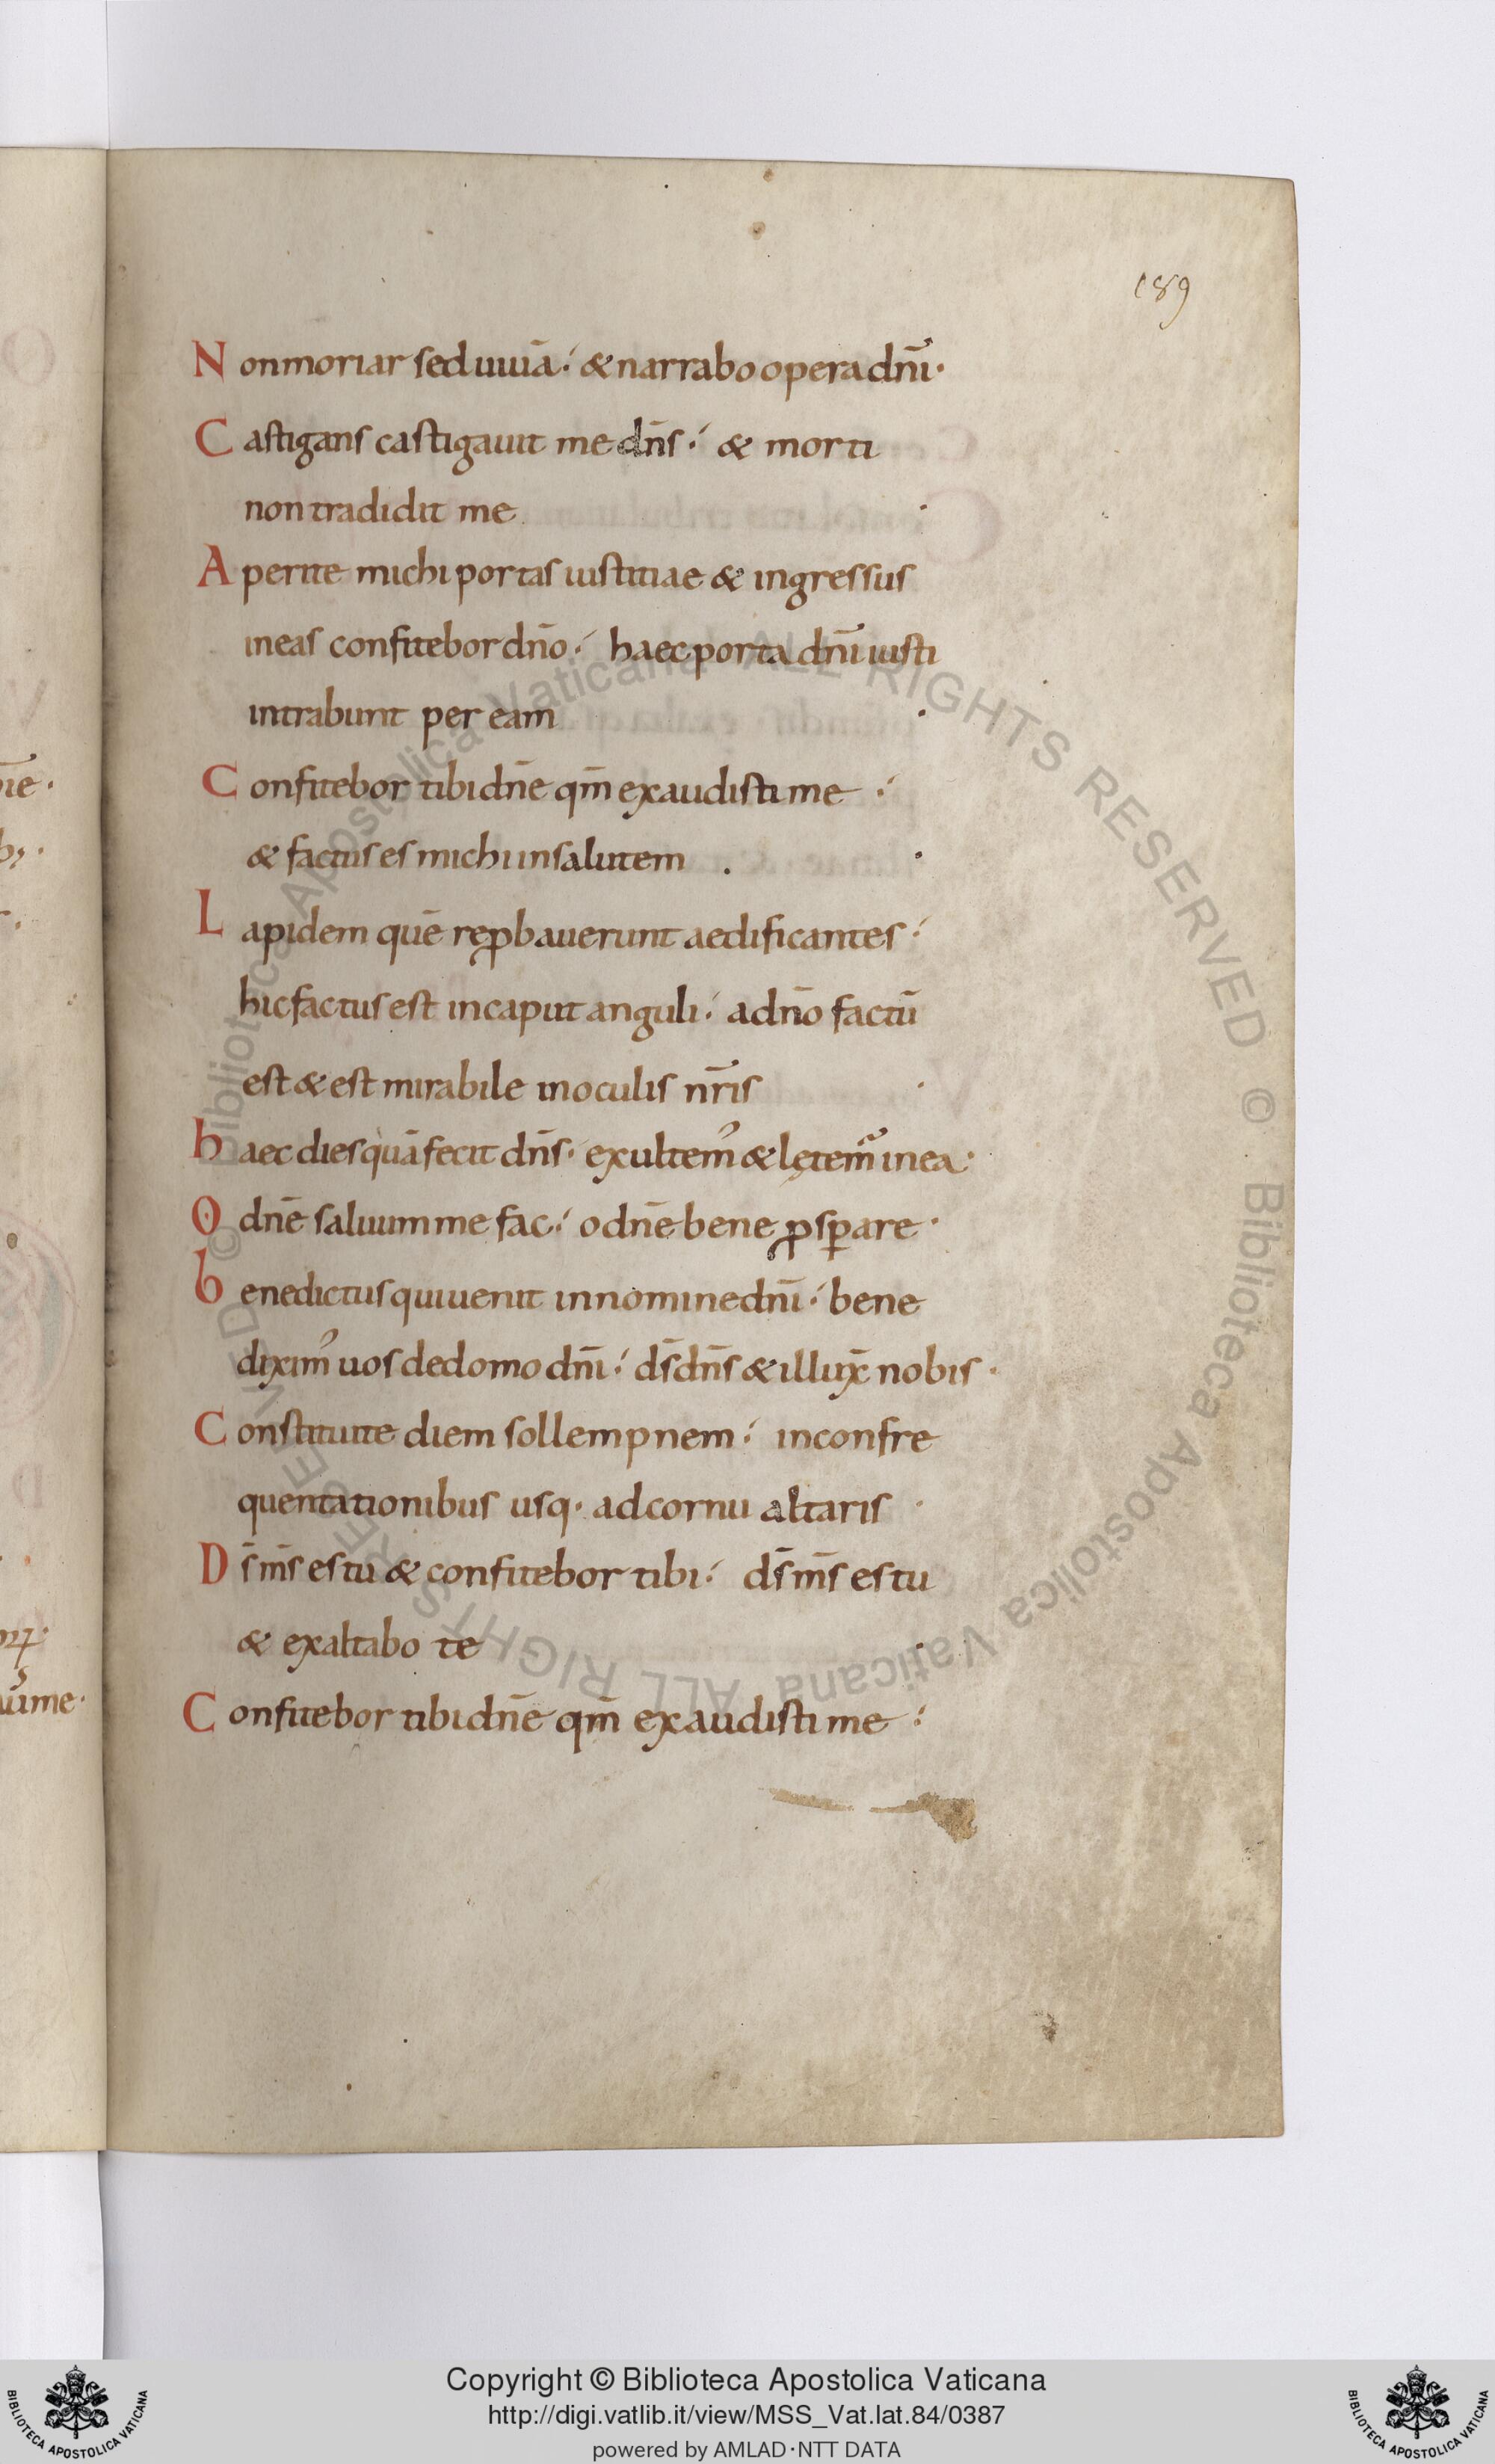 189
Non moriar sed uiuā·́ & narrabo opera dn̄i·
Castigans castigauit me dn̄s·́ & morti
non tradidit me ·
Aperite michi portas iustitiae & ingressus
in eas confitebor dn̄o·́ haec porta dn̄i iusti
intrabunt per eam ·
Confitebor tibi dn̄e qm̄ exaudisti me ·́
& factus es michi in salutem . ·
Lapidem quē reꝓbauerunt aedificantes·́
hic factus est in caput anguli·́ a dn̄o factū
est & est mirabile in oculis nr̄is ·
haec dies quā fecit dn̄s· exultem᾽ & lętem᷒ in ea·
O dn̄e saluum me fac·́ o dn̄e bene ꝓsꝑare·
benedictus qui uenit in nomine dn̄i·́ bene
dixim᾽ uos de domo dn̄i·́ ds̄ dn̄s & illux̄ nobis·
Constituite diem sollempnem·́ in confre
quentationibus usq· ad cornu altaris ·
Ds̄ ms̄ es tu & confitebor tibi·́ ds̄ ms̄ es tu
& exaltabo te ·
Confitebor tibi dn̄e qm̄ exaudisti me·́
© Biblioteca Apostolica Vaticana ALL RIGHTS RESERVED © Biblioteca Apostolica Vaticana ALL RIGHTS RESERVED
Copyright © Biblioteca Apostolica Vaticana
http://digi.vatlib.it/view/MSS_Vat.lat.84/0387
powered by AMLAD·NTT DATA
BIBLIOTECA APOSTOLICA VATICANA
BIBLIOTECA APOSTOLICA VATICANA